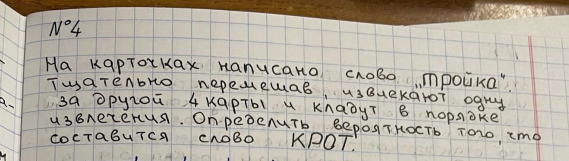 №4
На карточках написано слово „тройка".
Тщательно перемешав, извлекают одну
за другой 4 карты и кладут в порядке
извлечения. Определить вероятность того, что
составится слово КРОТ.